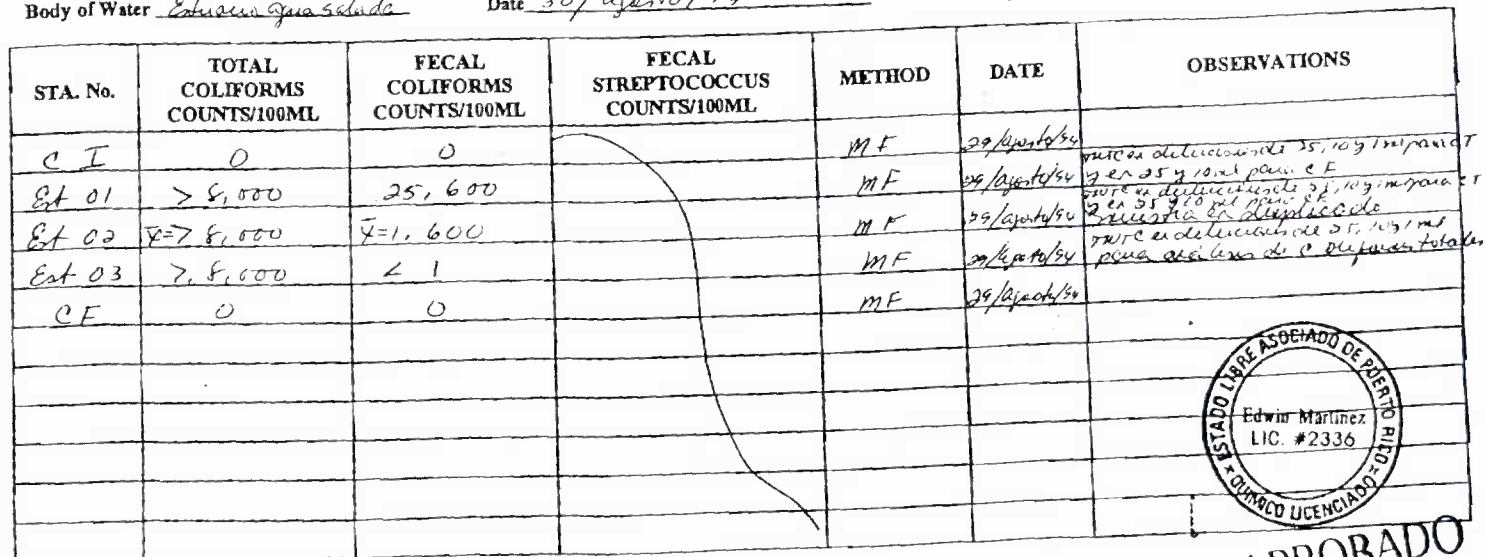 Body of Water Estuario agua Salada Date 30/agosto/
STA. No. TOTAL COLIFORMS COUNTS/100ML FECAL COLIFORMS COUNTS/100ML FECAL STREPTOCOCCUS COUNTS/100ML METHOD DATE OBSERVATIONS
C I 0 0 MF 29/agosto/94
TNTC en diluciones de 25, 10 y 1 ml para CT
y en 25 y 10 ml para CF
Est 01 > 8,000 25,600 MF 29/agosto/94
TNTC en diluciones de 25, 10 y 1 ml para CT
y en 25 y 10 ml para CF
Est 02 x̄=> 8,000 x̄=1,600 MF 29/agosto/94 muestra en duplicado
TNTC en diluciones de 25, 10 y 1 ml
Est 03 > 8,000 < 1 MF 29/agosto/94 para análisis de Coliformes totales
CF 0 0 MF 29/agosto/94
ESTADO LIBRE ASOCIADO DE PUERTO RICO
Edwin Martinez
LIC. #2336
QUIMICO LICENCIADO
APROBADO